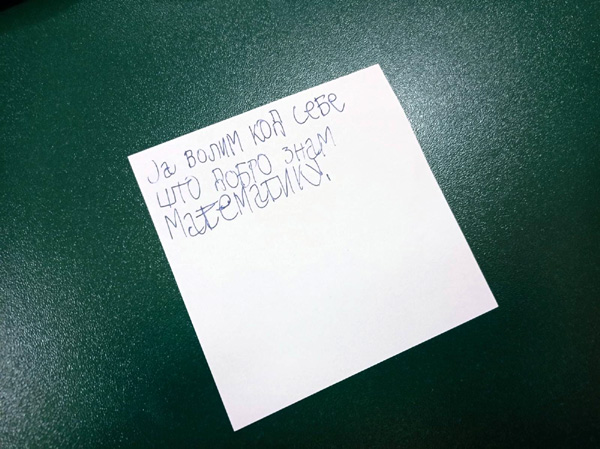 Ја волим код себе
што добро знам
математику.